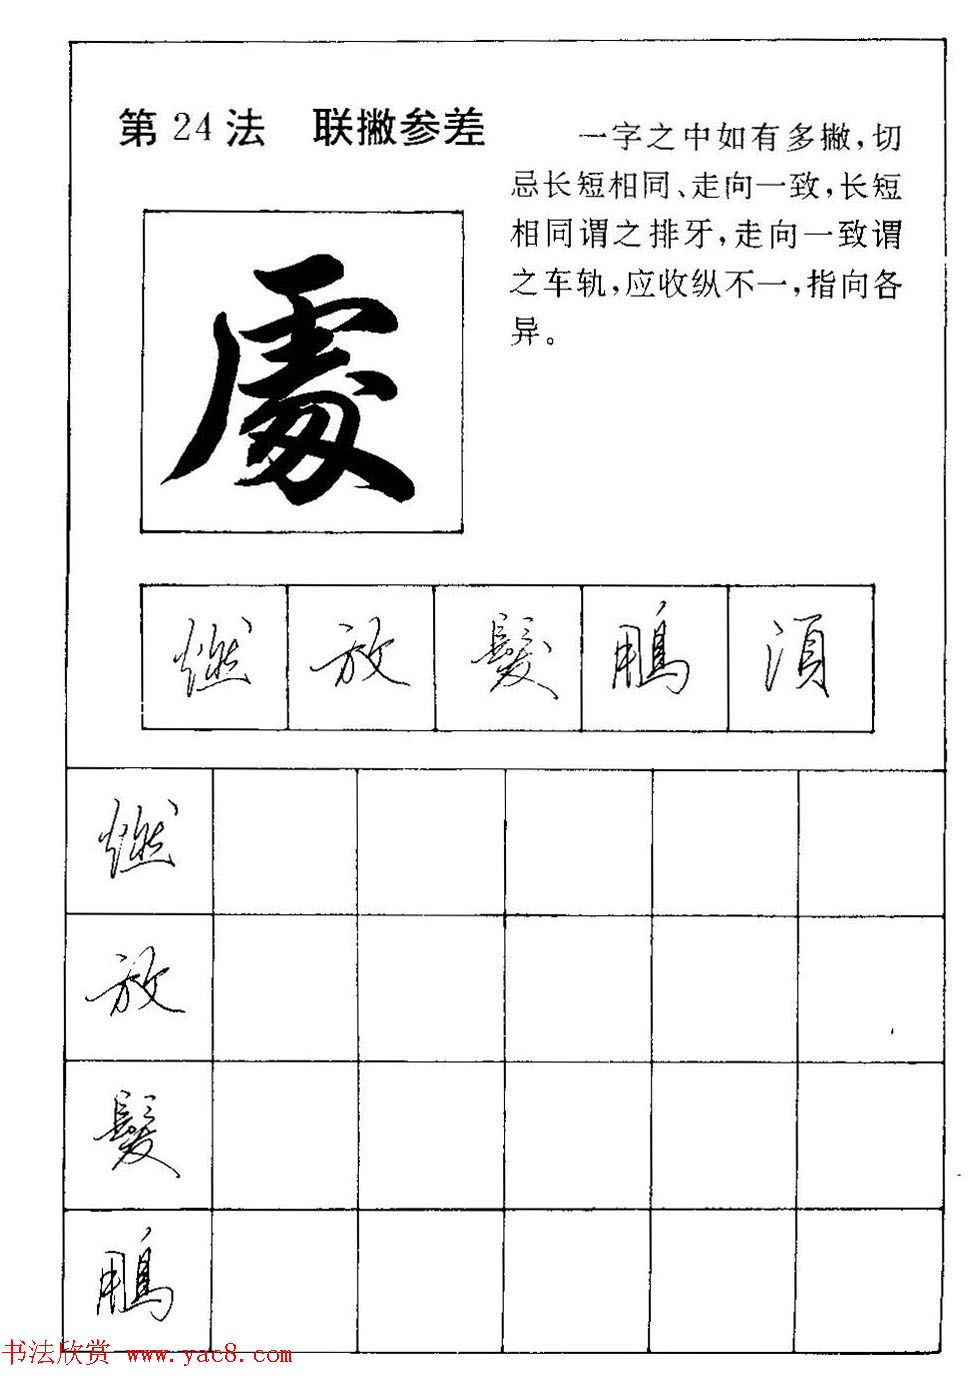 第24法 联撇参差
一字之中如有多撇，切
忌长短相同、走向一致，长短
相同谓之排牙，走向一致谓
之车轨，应收纵不一，指向各
异。
處
燃 放 髮 鵬 須
燃
放
髮
鵬
书法欣赏 www.yac8.com